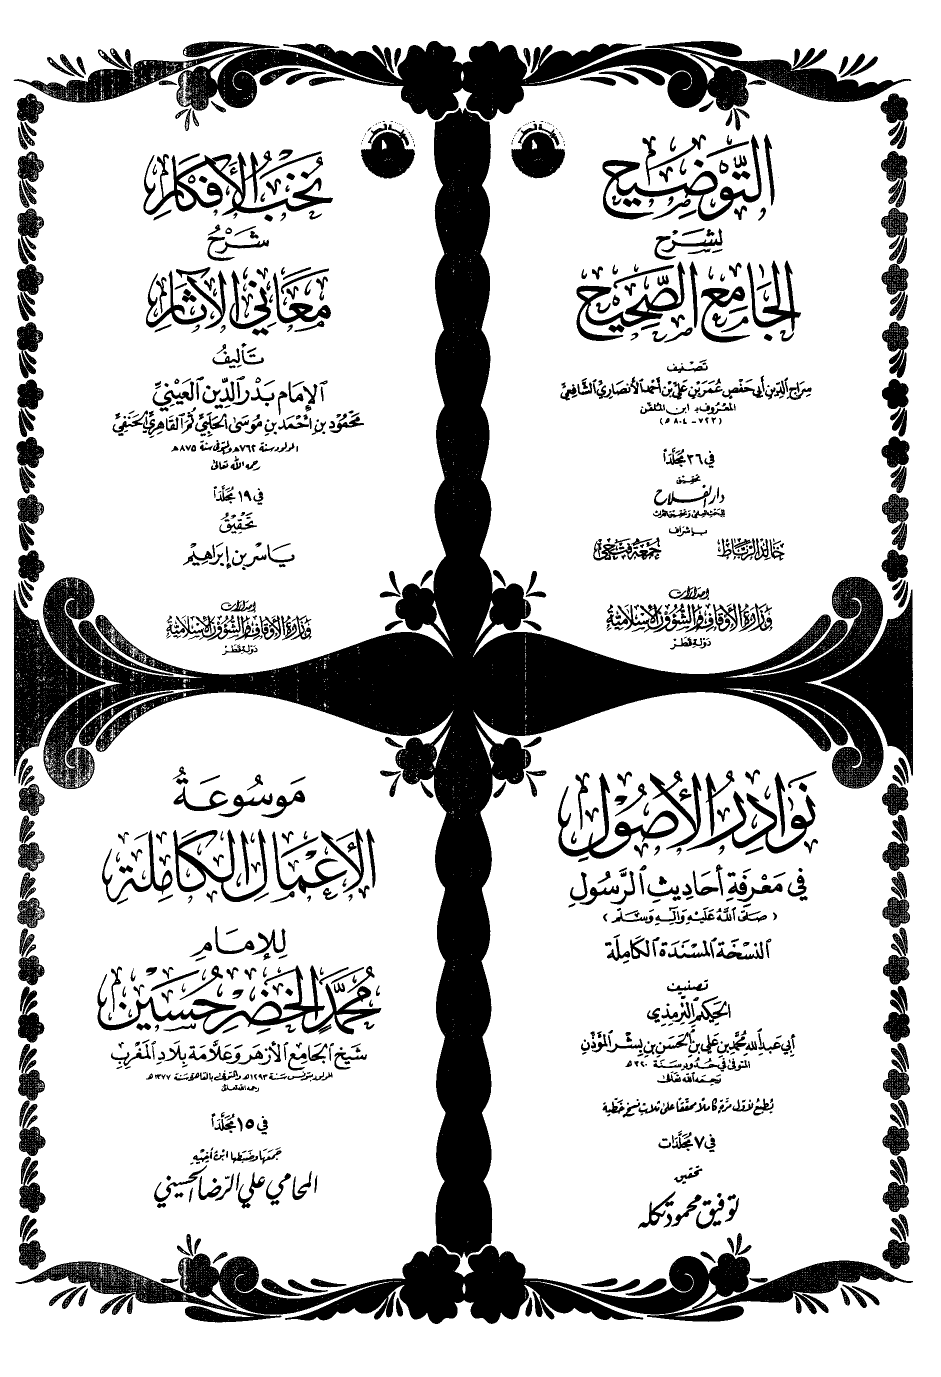 التَّوْضِيح
لِشَرْح
الجَامِعِ الصَّحِيحِ
تَصْنِيف
سِرَاجِ الدِّينِ أَبِي حَفْصٍ عُمَرَ بْنِ عَلِيِّ بْنِ أَحْمَدَ الأَنْصَارِيِّ الشَّافِعِيِّ
المَعْرُوفِ بِـ ابْنِ المُلَقِّن
(٧٢٣ - ٨٠٤ هـ)
في ٣٦ مُجَلَّدًا
تحقيق
دار الفلاح
للبحث العلمي وتحقيق التراث
بإشراف
خَالِد الرَّبَّاط جُمْعَة فَتْحِي
إصدارات
وَزَارَةِ الأَوْقَافِ وَالشُّؤُونِ الإِسْلَامِيَّةِ
دَوْلَة قَطَر
نُخَبُ الأَفْكَارِ
شَرْحُ
مَعَانِي الآثَارِ
تَأْلِيفُ
الإِمَامِ بَدْرِ الدِّينِ العَيْنِيِّ
مَحْمُودِ بنِ أَحْمَدَ بنِ مُوسَى الحَلَبِيِّ ثُمَّ القَاهِرِيِّ الحَنَفِيِّ
المولود سنة ٧٦٢ هـ والمتوفى سنة ٨٧٥ هـ
رحمه الله تعالى
في ١٩ مُجَلَّدًا
تَحْقِيقُ
يَاسِر بن إِبْرَاهِيْم
إصدارات
وَزَارَةِ الأَوْقَافِ وَالشُّؤُونِ الإِسْلَامِيَّةِ
دَوْلَة قَطَر
نَوَادِرُ الأُصُولِ
في مَعْرِفَةِ أَحَادِيثِ الرَّسُولِ
(صَلَّى اللَّهُ عَلَيْهِ وَآلِهِ وَسَلَّم)
النُّسْخَة المُسْنَدَة الكَامِلَة
تصنيف
الحَكِيمِ التِّرْمِذِي
أَبِي عَبْدِ اللهِ مُحَمَّدِ بنِ عَلِي بنِ الحَسَنِ بنِ بِشْرٍ المُؤَذِّنِ
المتوفى في حدود سنة ٣٢٠ هـ
رحمه الله تعالى
يُطْبَعُ لأَوَّل مَرَّةٍ كَامِلًا مُحَقَّقًا عَلَى ثَلَاثِ نُسَخٍ خَطِّيَّة
في ٧ مُجَلَّدَات
تحقيق
توفيق محمود تكله
مَوسُوعَةُ
الأَعْمَالِ الكَامِلَةِ
لِلإِمَامِ
مُحَمَّدٍ الخَضِرِ حُسَيْن
شَيْخِ الجَامِعِ الأَزْهَرِ وَعَلَّامَةِ بِلَادِ المَغْرِبِ
المولود بتونس سنة ١٢٩٣ هـ والمتوفى بالقاهرة سنة ١٣٧٧ هـ
رحمه الله تعالى
في ١٥ مُجَلَّدًا
جَمَعَهَا وضَبَطَها ابْنُ أَخِيهِ
المحامي علي الرضا الحسيني